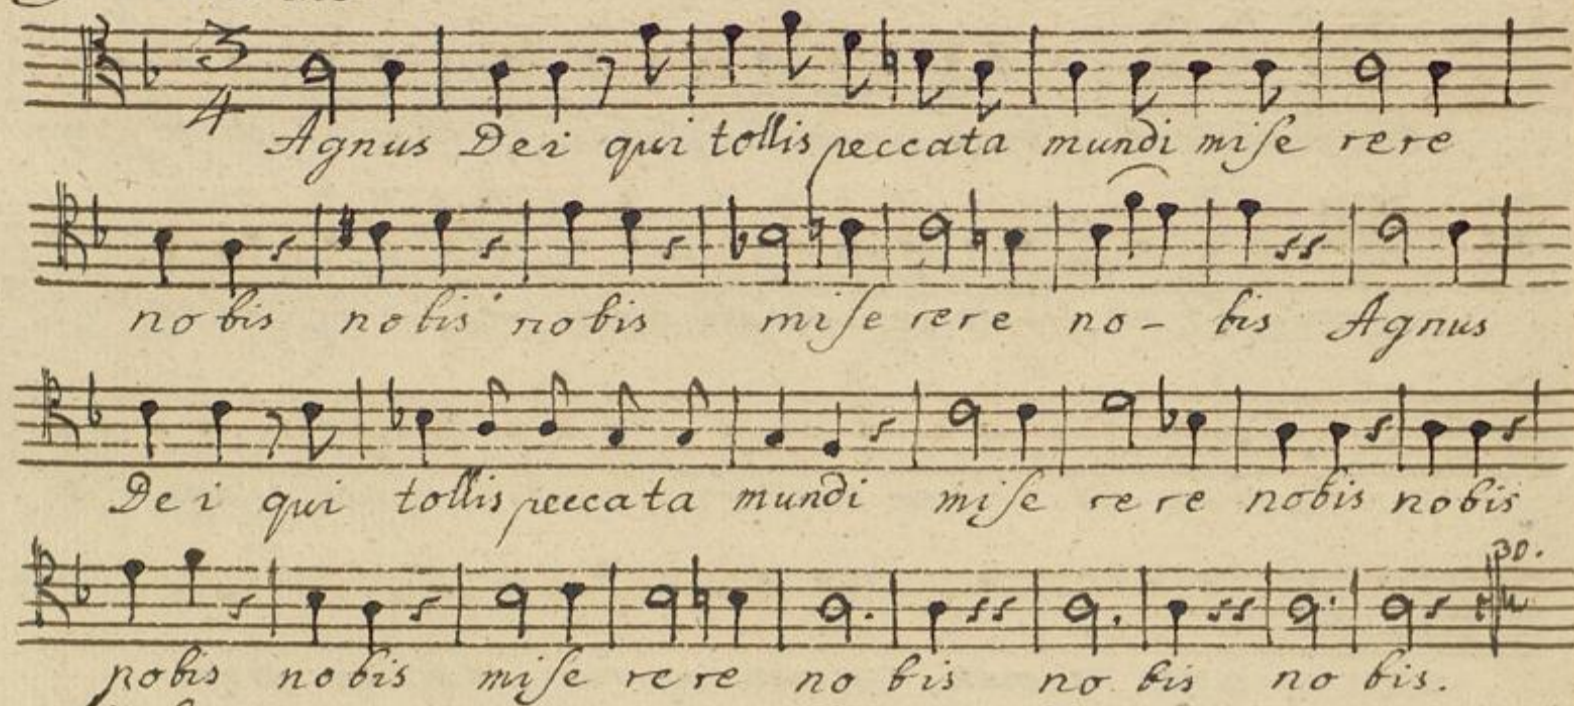 3/4
Agnus Dei qui tollis peccata mundi miſe rere
no bis nobis nobis miſe rere no - bis Agnus
De i qui tollis peccata mundi miſe re re nobis nobis
30.
nobis nobis miſe rere no bis no bis no bis.